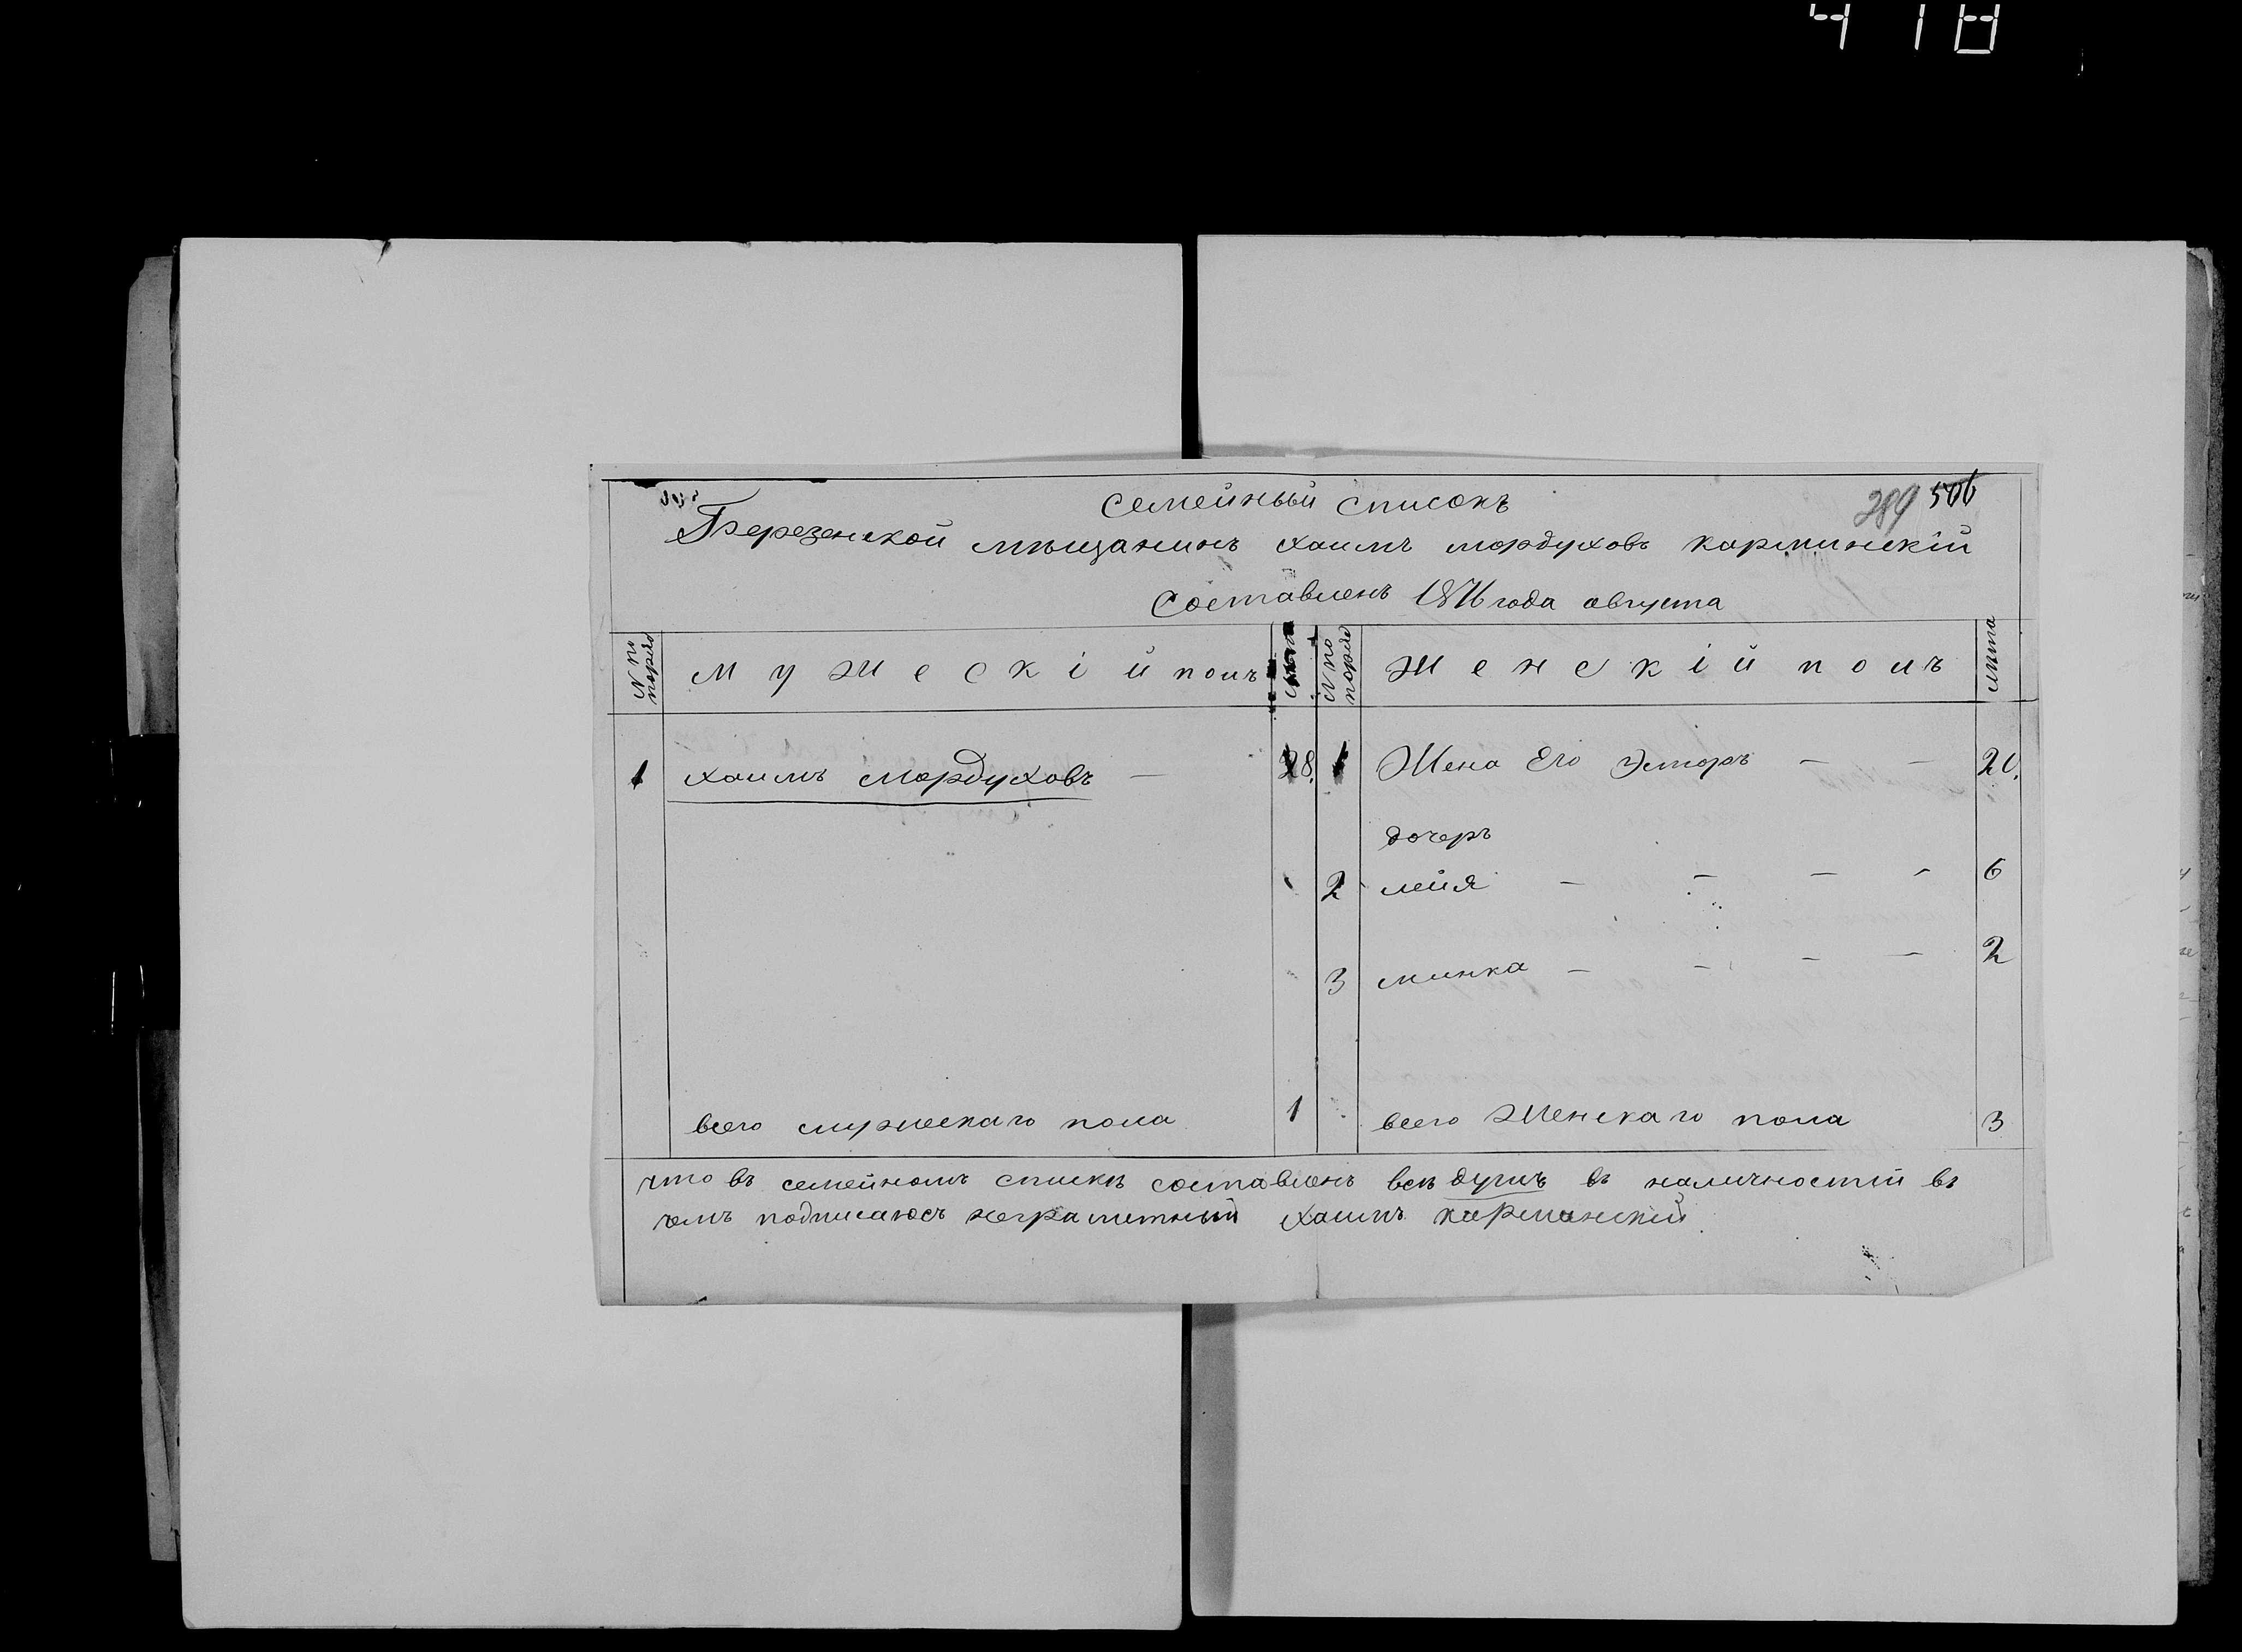 418
Семейный списокъ
289 506
Березенской мещанинъ хаимъ мордуховъ карминскій
Составленъ 1876 года августа
№ по порядк
Мужескій полъ
лета
№ по порядк
Женскій полъ
лета
1 хаимъ мордуховъ — 28.
1 Жена Его Эсторъ — — 20.
дочеръ
2 лейя — — — — 6
3 минка — — — — 2
всего мужескаго пола 1
всего Женскаго пола 3
что въ семейномъ списке составленъ все душъ въ наличностій въ
чемъ подписаюсъ неграмитный хаимъ карминскій